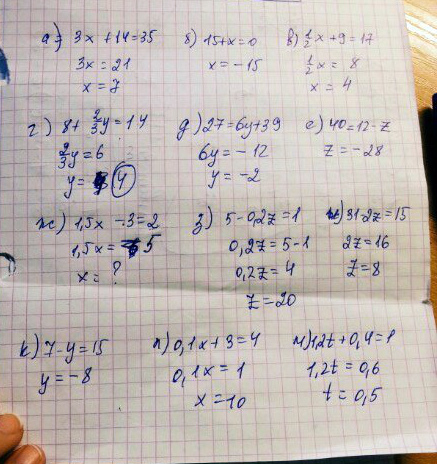 а) 3x + 14 = 35
3x = 21
x = 7
б) 15 + x = 0
x = -15
в) 1/2 x + 9 = 17
1/2 x = 8
x = 4
г) 8 + 2/3 y = 14
2/3 y = 6
y = 4
д) 27 = 6y + 39
6y = -12
y = -2
е) 40 = 12 - z
z = -28
ж) 1,5x - 3 = 2
1,5x = 5
x = ?
з) 5 - 0,2z = 1
0,2z = 5 - 1
0,2z = 4
z = 20
31 - 2z = 15
2z = 16
z = 8
к) 7 - y = 15
y = -8
л) 0,1x + 3 = 4
0,1x = 1
x = 10
м) 1,2t + 0,4 = 1
1,2t = 0,6
t = 0,5